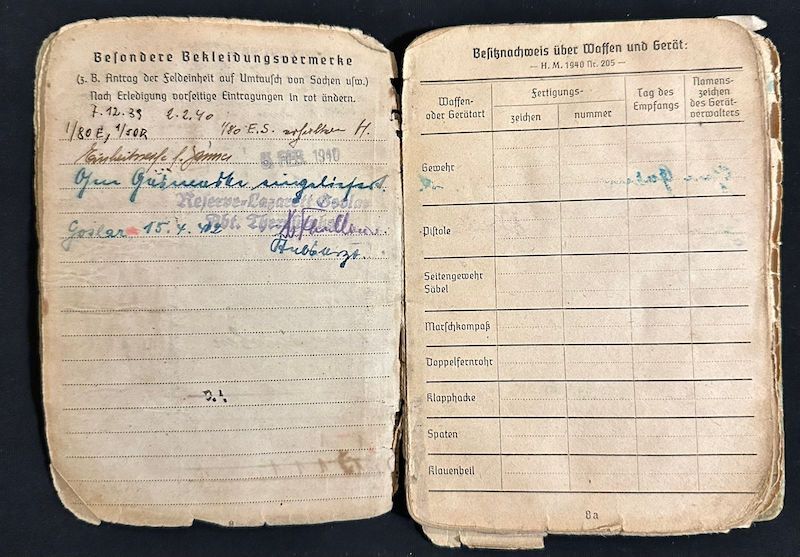 Besondere Bekleidungsvermerke
(z. B. Antrag der Feldeinheit auf Umtausch von Sachen usw.)
Nach Erledigung vorseitige Eintragungen in rot ändern.
7.12.39 2.2.40
1/80 E, 1/50R 1/80 E.S. erhalten H.
FEB. 1940
Ohne Gasmaske eingeliefert.
Reserve-Lazarett Goslar
Abt.
Goslar 15.4.42
D.!
Besitznachweis über Waffen und Gerät:
— H. M. 1940 Nr. 205 —
Waffen- oder Gerätart
Fertigungs-
zeichen
nummer
Tag des Empfangs
Namenszeichen des Gerätverwalters
Gewehr
Pistole
Seitengewehr
Säbel
Marschkompaß
Doppelfernrohr
Klapphacke
Spaten
Klauenbeil
8a